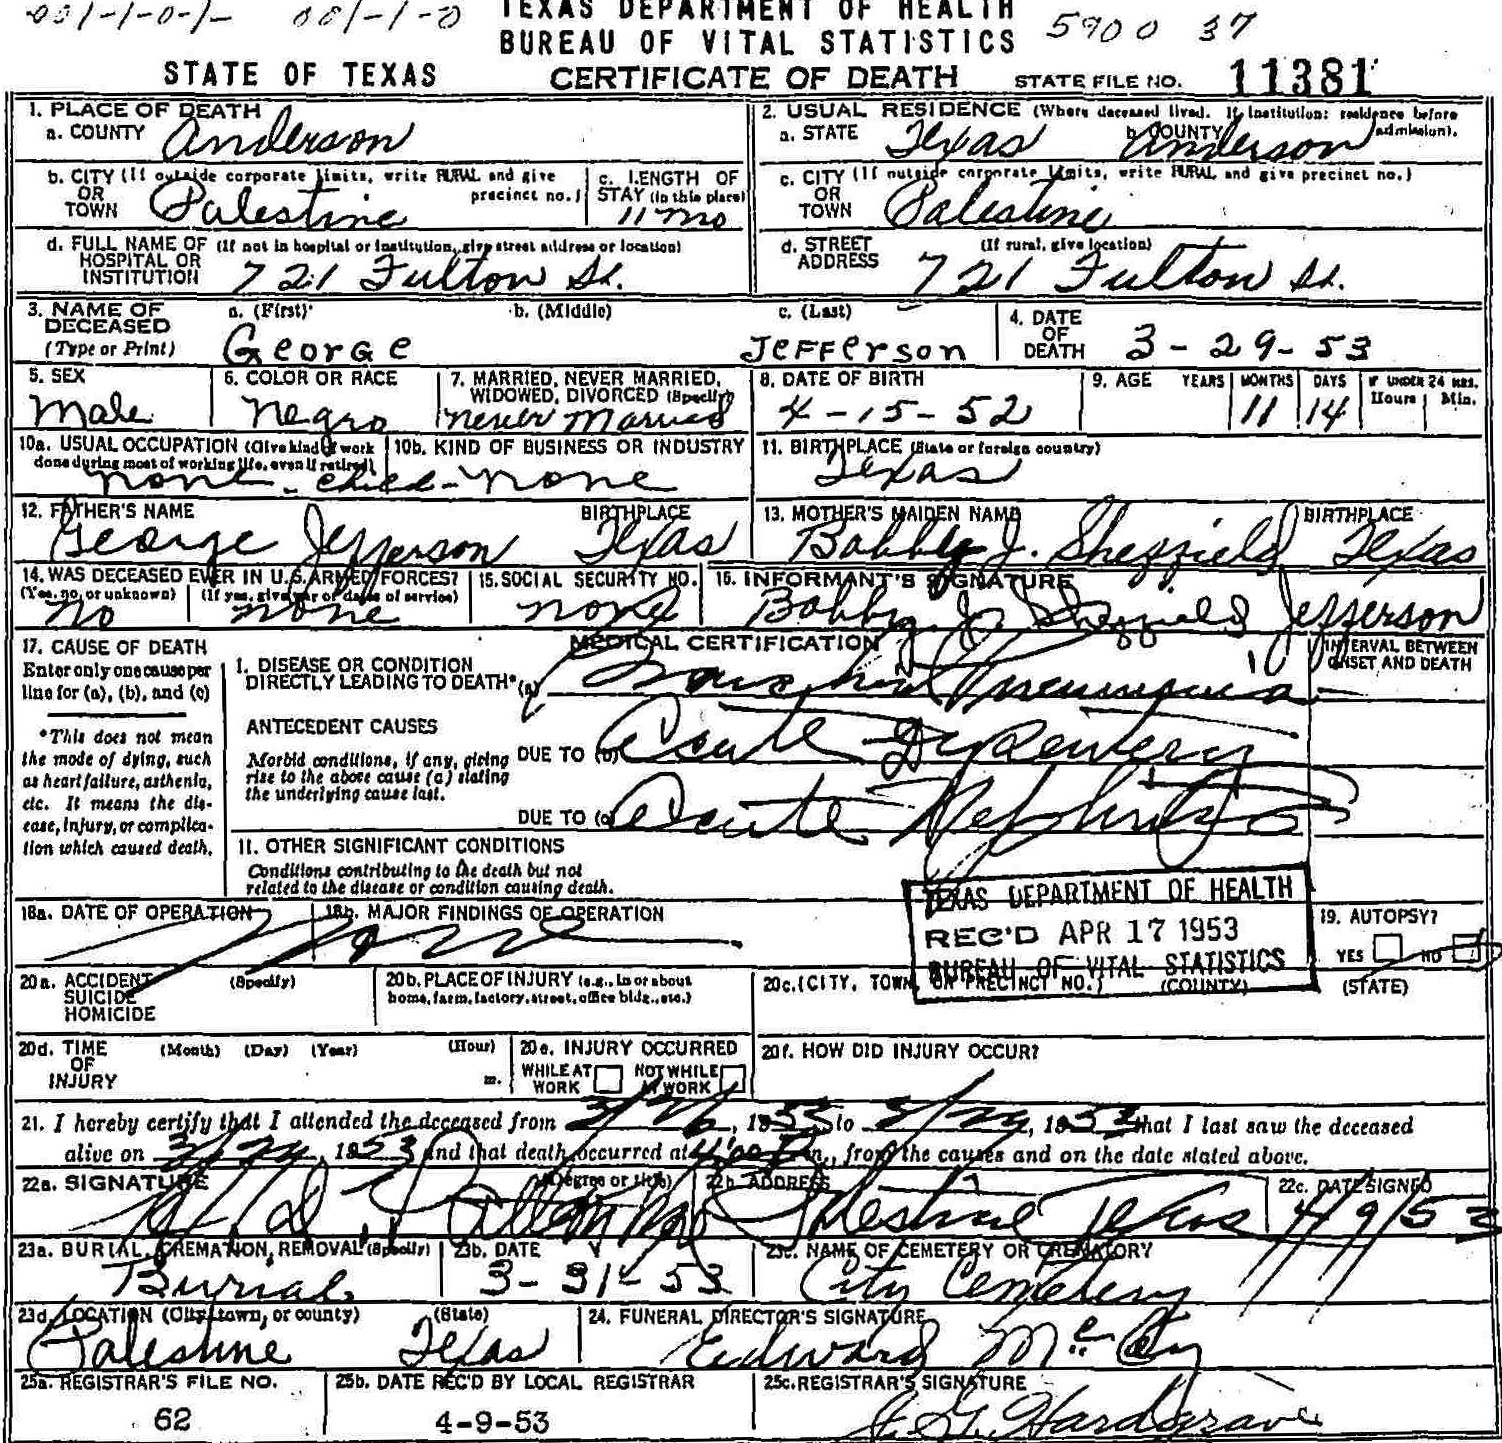 001-1-0-1- 001-1-0
TEXAS DEPARTMENT OF HEALTH
BUREAU OF VITAL STATISTICS 5900 37
STATE OF TEXAS CERTIFICATE OF DEATH STATE FILE NO. 11381
1. PLACE OF DEATH
a. COUNTY Anderson
2. USUAL RESIDENCE (Where deceased lived. If institution: residence before admission).
a. STATE Texas b. COUNTY Anderson
b. CITY (If outside corporate limits, write RURAL and give precinct no.)
OR TOWN Palestine
c. LENGTH OF STAY (in this place)
11 mo
c. CITY (If outside corporate limits, write RURAL and give precinct no.)
OR TOWN Palestine
d. FULL NAME OF (If not in hospital or institution, give street address or location)
HOSPITAL OR INSTITUTION 721 Fulton St.
d. STREET ADDRESS (If rural, give location)
721 Fulton St.
3. NAME OF DECEASED (Type or Print)
a. (First) b. (Middle) c. (Last)
George Jefferson
4. DATE OF DEATH 3-29-53
5. SEX
Male
6. COLOR OR RACE
Negro
7. MARRIED, NEVER MARRIED, WIDOWED, DIVORCED (Specify)
Never Married
8. DATE OF BIRTH
4-15-52
9. AGE YEARS MONTHS DAYS IF UNDER 24 HRS. Hours Min.
11 14
10a. USUAL OCCUPATION (Give kind of work done during most of working life, even if retired)
none - child -
10b. KIND OF BUSINESS OR INDUSTRY
none
11. BIRTHPLACE (State or foreign country)
Texas
12. FATHER'S NAME BIRTHPLACE
George Jefferson Texas
13. MOTHER'S MAIDEN NAME BIRTHPLACE
Bobby J. Sheffield Texas
14. WAS DECEASED EVER IN U.S. ARMED FORCES?
(Yes, no, or unknown) (If yes, give war or dates of service)
no none
15. SOCIAL SECURITY NO.
none
16. INFORMANT'S SIGNATURE
Bobby Jo Sheffield Jefferson
17. CAUSE OF DEATH
Enter only one cause per line for (a), (b), and (c)
*This does not mean the mode of dying, such as heart failure, asthenia, etc. It means the disease, injury, or complication which caused death.
MEDICAL CERTIFICATION
INTERVAL BETWEEN ONSET AND DEATH
I. DISEASE OR CONDITION DIRECTLY LEADING TO DEATH* (a) Bronchial Pneumonia
ANTECEDENT CAUSES
Morbid conditions, if any, giving rise to the above cause (a) stating the underlying cause last.
DUE TO (b) Acute Dysentery
DUE TO (c) Acute Nephritis
II. OTHER SIGNIFICANT CONDITIONS
Conditions contributing to the death but not related to the disease or condition causing death.
TEXAS DEPARTMENT OF HEALTH
REC'D APR 17 1953
BUREAU OF VITAL STATISTICS
18a. DATE OF OPERATION 18b. MAJOR FINDINGS OF OPERATION
None
19. AUTOPSY?
YES NO
20a. ACCIDENT SUICIDE HOMICIDE (Specify)
20b. PLACE OF INJURY (e.g., in or about home, farm, factory, street, office bldg., etc.)
20c. (CITY, TOWN, OR PRECINCT NO.) (COUNTY) (STATE)
20d. TIME OF INJURY (Month) (Day) (Year) (Hour) m.
20e. INJURY OCCURRED
WHILE AT WORK NOT WHILE AT WORK
20f. HOW DID INJURY OCCUR?
21. I hereby certify that I attended the deceased from 3/26, 1953, to 3/29, 1953 that I last saw the deceased
alive on 3/29, 1953 and that death occurred at 4:00 P m., from the causes and on the date stated above.
22a. SIGNATURE (Degree or title)
22b. ADDRESS
Palestine Texas
22c. DATE SIGNED
4/9/53
23a. BURIAL, CREMATION, REMOVAL (Specify)
Burial
23b. DATE
3-31-53
23c. NAME OF CEMETERY OR CREMATORY
City Cemetery
23d. LOCATION (City, town, or county) (State)
Palestine Texas
24. FUNERAL DIRECTOR'S SIGNATURE
Edward McCoy
25a. REGISTRAR'S FILE NO.
62
25b. DATE REC'D BY LOCAL REGISTRAR
4-9-53
25c. REGISTRAR'S SIGNATURE
Hardgrave